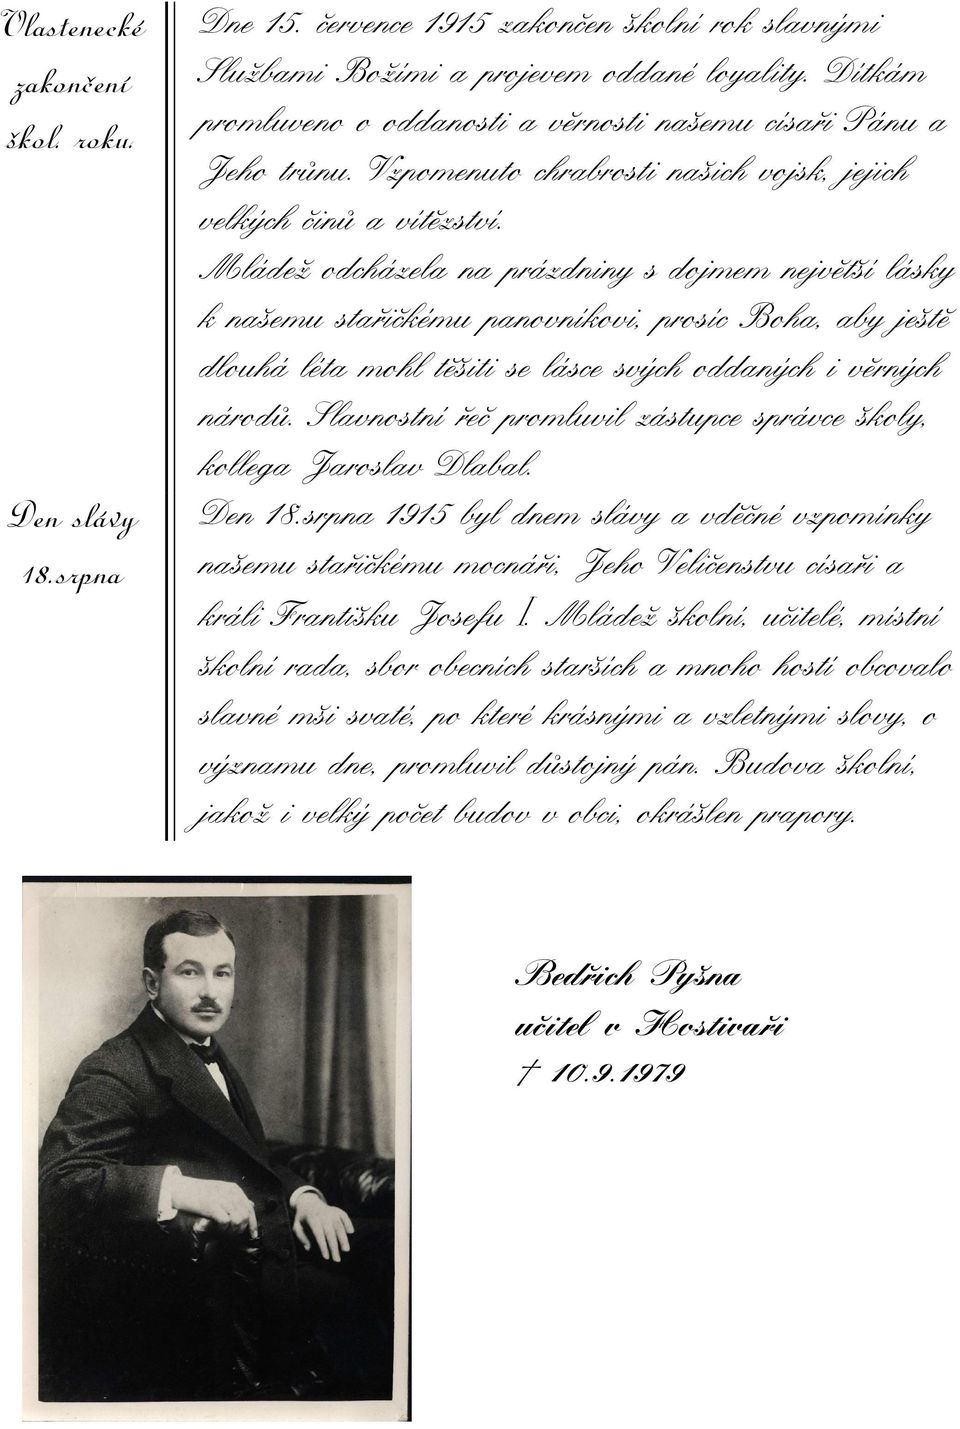 Vlastenecké
zakončení
škol. roku.
Dne 15. července 1915 zakončen školní rok slavnými
Službami Božími a projevem oddané loyality. Dítkám
promluveno o oddanosti a věrnosti našemu císaři Pánu a
Jeho trůnu. Vzpomenuto chrabrosti našich vojsk, jejich
velkých činů a vítězství.
Mládež odcházela na prázdniny s dojmem největší lásky
k našemu stařičkému panovníkovi, prosíc Boha, aby ještě
dlouhá léta mohl těšiti se lásce svých oddaných i věrných
národů. Slavnostní řeč promluvil zástupce správce školy,
kollega Jaroslav Dlabal.
Den slávy
18.srpna
Den 18.srpna 1915 byl dnem slávy a vděčné vzpomínky
našemu stařičkému mocnáři, Jeho Veličenstvu císaři a
králi Františku Josefu I. Mládež školní, učitelé, místní
školní rada, sbor obecních starších a mnoho hostí obcovalo
slavné mši svaté, po které krásnými a vzletnými slovy, o
významu dne, promluvil důstojný pán. Budova školní,
jakož i velký počet budov v obci, okrášlen prapory.
Bedřich Pyšna
učitel v Hostivaři
† 10.9.1979